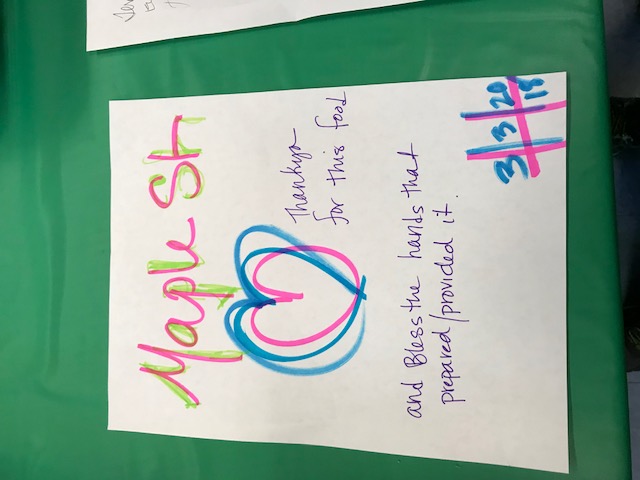 Maple St
Thankyou
for this food
and Bless the hands that
prepared/provided it.
3 3 20
18